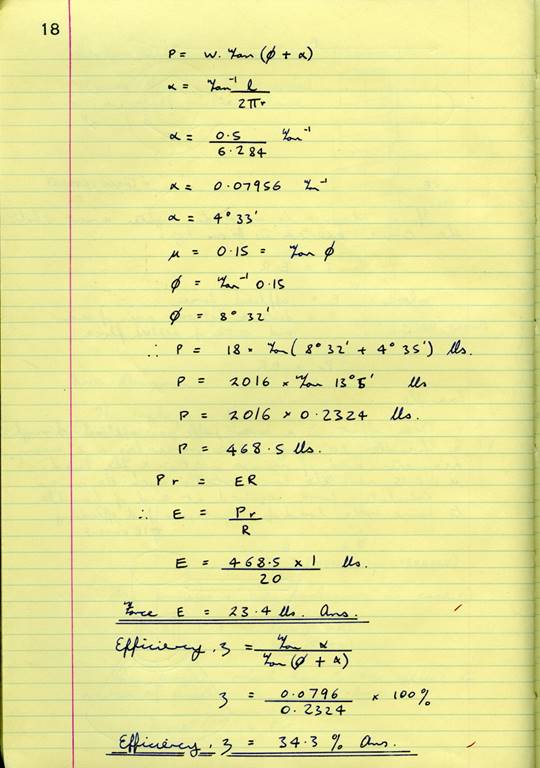 18
P = W. Tan (φ + α)
α = Tan⁻¹ l / 2πr
α = 0.5 / 6.284 Tan⁻¹
α = 0.07956 Tan⁻¹
α = 4° 33'
μ = 0.15 = Tan φ
φ = Tan⁻¹ 0.15
φ = 8° 32'
∴ P = 18 × Tan ( 8° 32' + 4° 35' ) lbs.
P = 2016 × Tan 13° 5' lbs
P = 2016 × 0.2324 lbs.
P = 468.5 lbs.
Pr = ER
∴ E = Pr / R
E = 468.5 × 1 / 20 lbs.
Force E = 23.4 lbs. Ans.
Efficiency, ζ = Tan α / Tan (φ + α)
ζ = 0.0796 / 0.2324 × 100%
Efficiency, ζ = 34.3 % Ans.